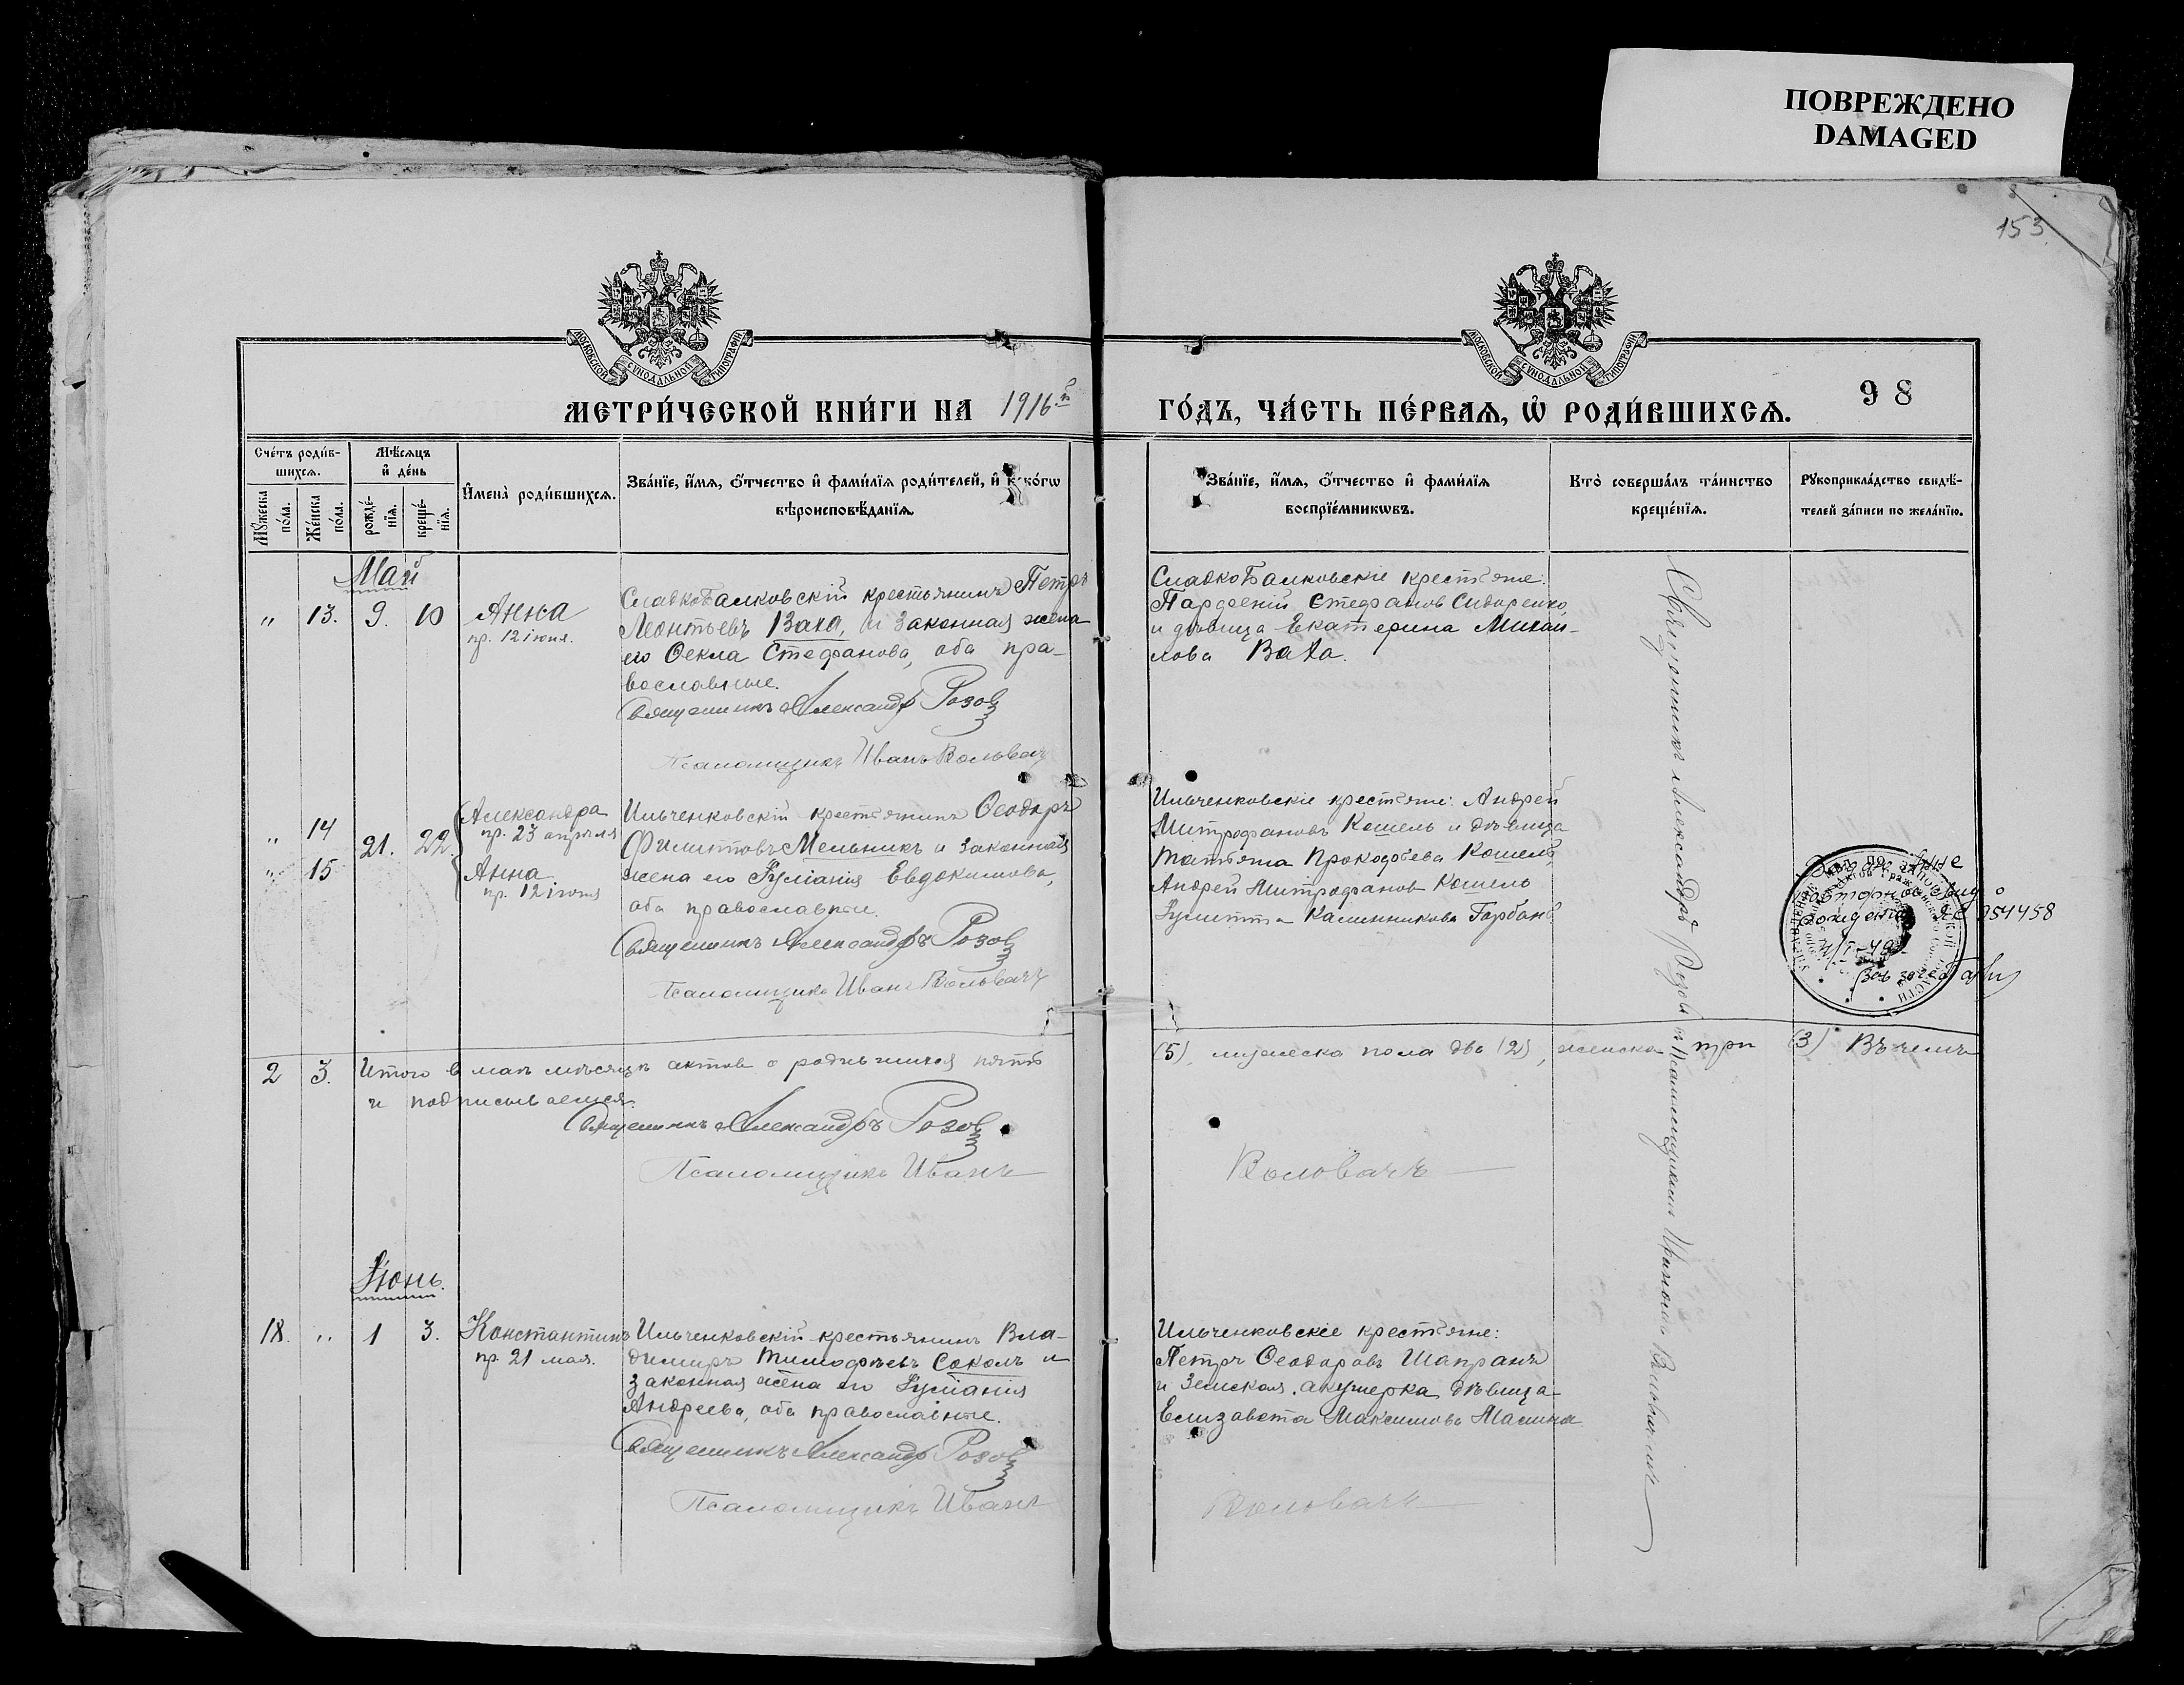 ПОВРЕЖДЕНО
DAMAGED
153.
МОСКОВСКОЙ СѴНОДАЛЬНОЙ ТИПОГРАФІИ
МОСКОВСКОЙ СѴНОДАЛЬНОЙ ТИПОГРАФІИ
МЕТРИ́ЧЕСКОЙ КНИ́ГИ НА 1916й ГО́ДЪ, ЧА́СТЬ ПЕ́РВАЯ, Ѡ҆ РОДИ́ВШИХСЯ.
98
Сче́тъ роди́в-
шихся.
Мѣ́сяцъ
и҆ де́нь
Мꙋ́жеска
по́ла.
Же́нска
по́ла.
рожде́-
нїя.
креще́-
нїя.
И҆мена̀ роди́вшихся.
Зва́нїе, и҆́мя, ѻ҆́тчество и҆ фами́лїя роди́телей, и҆ како́гѡ
вѣроисповѣ́данїя.
Зва́нїе, и҆́мя, ѻ҆́тчество и҆ фами́лїя
воспрїе́мникѡвъ.
Кто̀ соверша́лъ та́инство
креще́нїя.
Рꙋкоприкла́дство свидѣ́-
телей за́писи по жела́нїю.
Май
" 13. 9. 10 Анна
пр. 12 іюня.
Сладкобалковскій крестьянинъ Петръ
Леонтьевъ Ваха, и законная жена
его Ѳекла Стефанова, оба пра-
вославные.
Священникъ Александръ Розов
Псаломщикъ Иванъ Воловачъ
Сладкобалковскіе крестьяне:
Парфеній Стефановъ Сидоренко
и дѣвица Екатерина Михаи-
лова Ваха.
" 14 21. 22. Александра
пр. 23 апрѣля
" 15 Анна
пр. 12 іюня
Ильченковскій крестьянинъ Ѳеодоръ
Филипповъ Мельникъ и законная
жена его Іуліанія Евдокимова,
оба православные.
Священникъ Александръ Розов
Псаломщикъ Иванъ Воловачъ
Ильченковскіе крестьяне: Андрей
Митрофановъ Кошель и дѣвица
Татьяна Прокофьева Кошель
Андрей Митрофановъ Кошель
Іулитта Калинникова Горбань
2 3. Итого в маѣ мѣсяцѣ актов о родившихся пять (5), мужеска пола два (2), женска три (3) Въ чемъ
и подписываемся.
Священникъ Александръ Розов
Псаломщикъ Иванъ Воловачъ
Іюнь.
18. " 1 3. Константинъ
пр. 21 мая.
Ильченковскій крестьянинъ Вла-
димиръ Тимофѣевъ Соколъ и
законная жена его Іуліанія
Андреева, оба православные.
Священникъ Александръ Розов
Псаломщикъ Иванъ Воловачъ
Ильченковскіе крестьяне:
Петръ Ѳеодоровъ Шапранъ
и Земская акушерка дѣвица
Елизавета Максимова Малина
Священникъ Александръ Розовъ съ Псаломщикомъ Иваномъ Воловачемъ